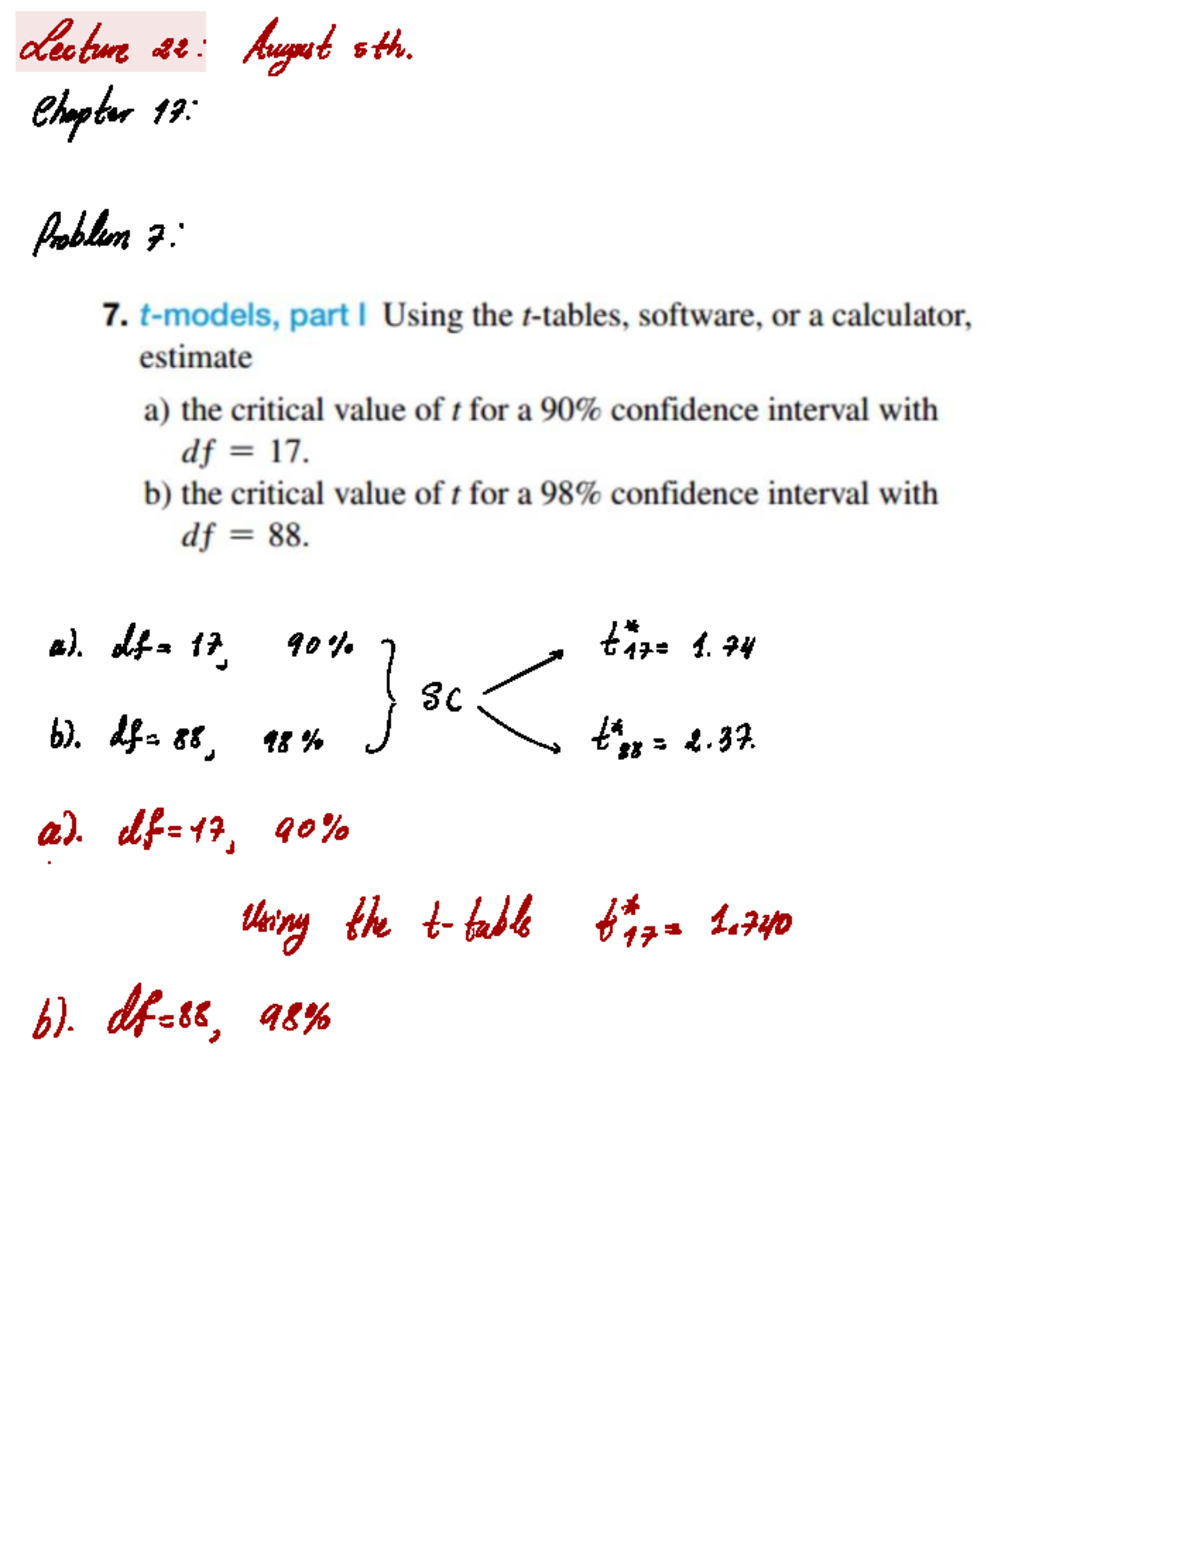 Lecture 22: August 5th.
Chapter 17:
Problem 7:
7. t-models, part I Using the t-tables, software, or a calculator,
estimate
a) the critical value of t for a 90% confidence interval with
df = 17.
b) the critical value of t for a 98% confidence interval with
df = 88.
a). df = 17, 90% } SC t*17 = 1.74
b). df = 88, 98% t*88 = 2.37.
a). df = 17, 90%
Using the t-table t*17 = 1.740
b). df = 88, 98%